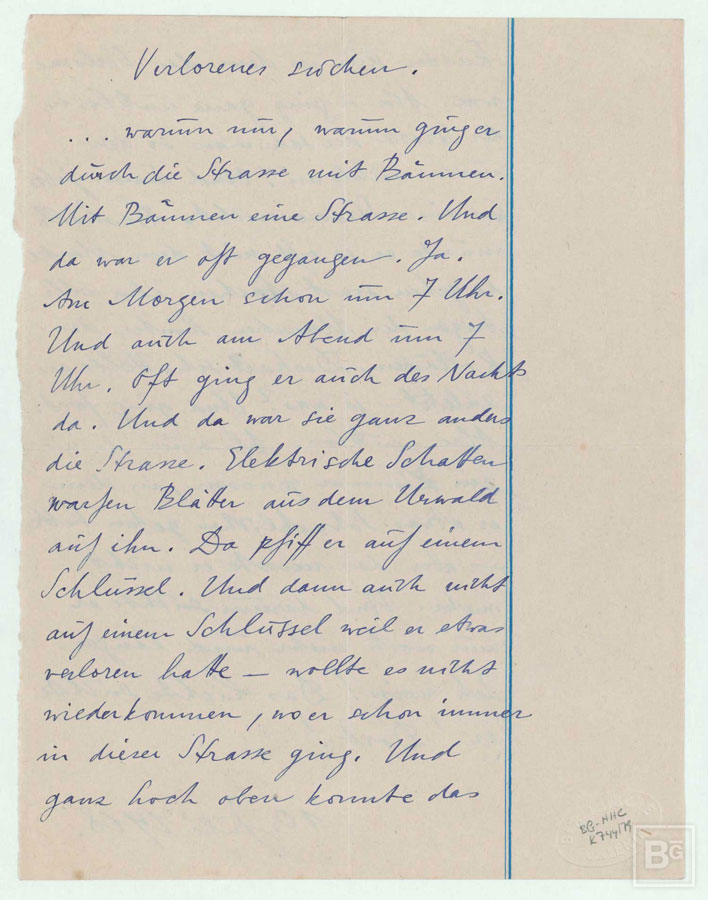 Verlorenes suchen.
... warum nur, warum ging er
durch die Strasse mit Bäumen.
Mit Bäumen eine Strasse. Und
da war er oft gegangen. Ja.
Am Morgen schon um 7 Uhr.
Und auch am Abend um 7
Uhr. Oft ging er auch des Nachts
da. Und da war sie ganz anders
die Strasse. Elektrische Schatten
warfen Blätter aus dem Urwald
auf ihn. Da pfiff er auf einem
Schlüssel. Und dann auch nicht
auf einem Schlüssel weil er etwas
verloren hatte — wollte es nicht
wiederkommen, wo er schon immer
in dieser Strasse ging. Und
ganz hoch oben konnte das
BG-HHC
K 744/79
BG